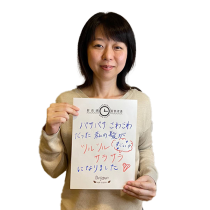 パサパサ ごわごわ
だった 私の髪が
ツルツル
サラサラ
になりました♡